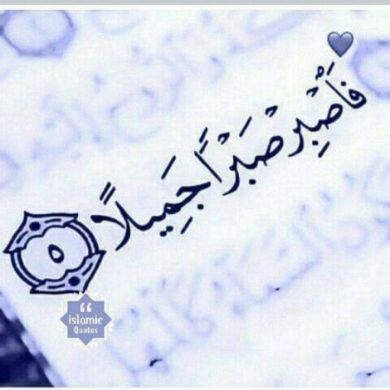 فَاصْبِرْ صَبْرًا جَمِيلًا ٥
islamic
Quotes